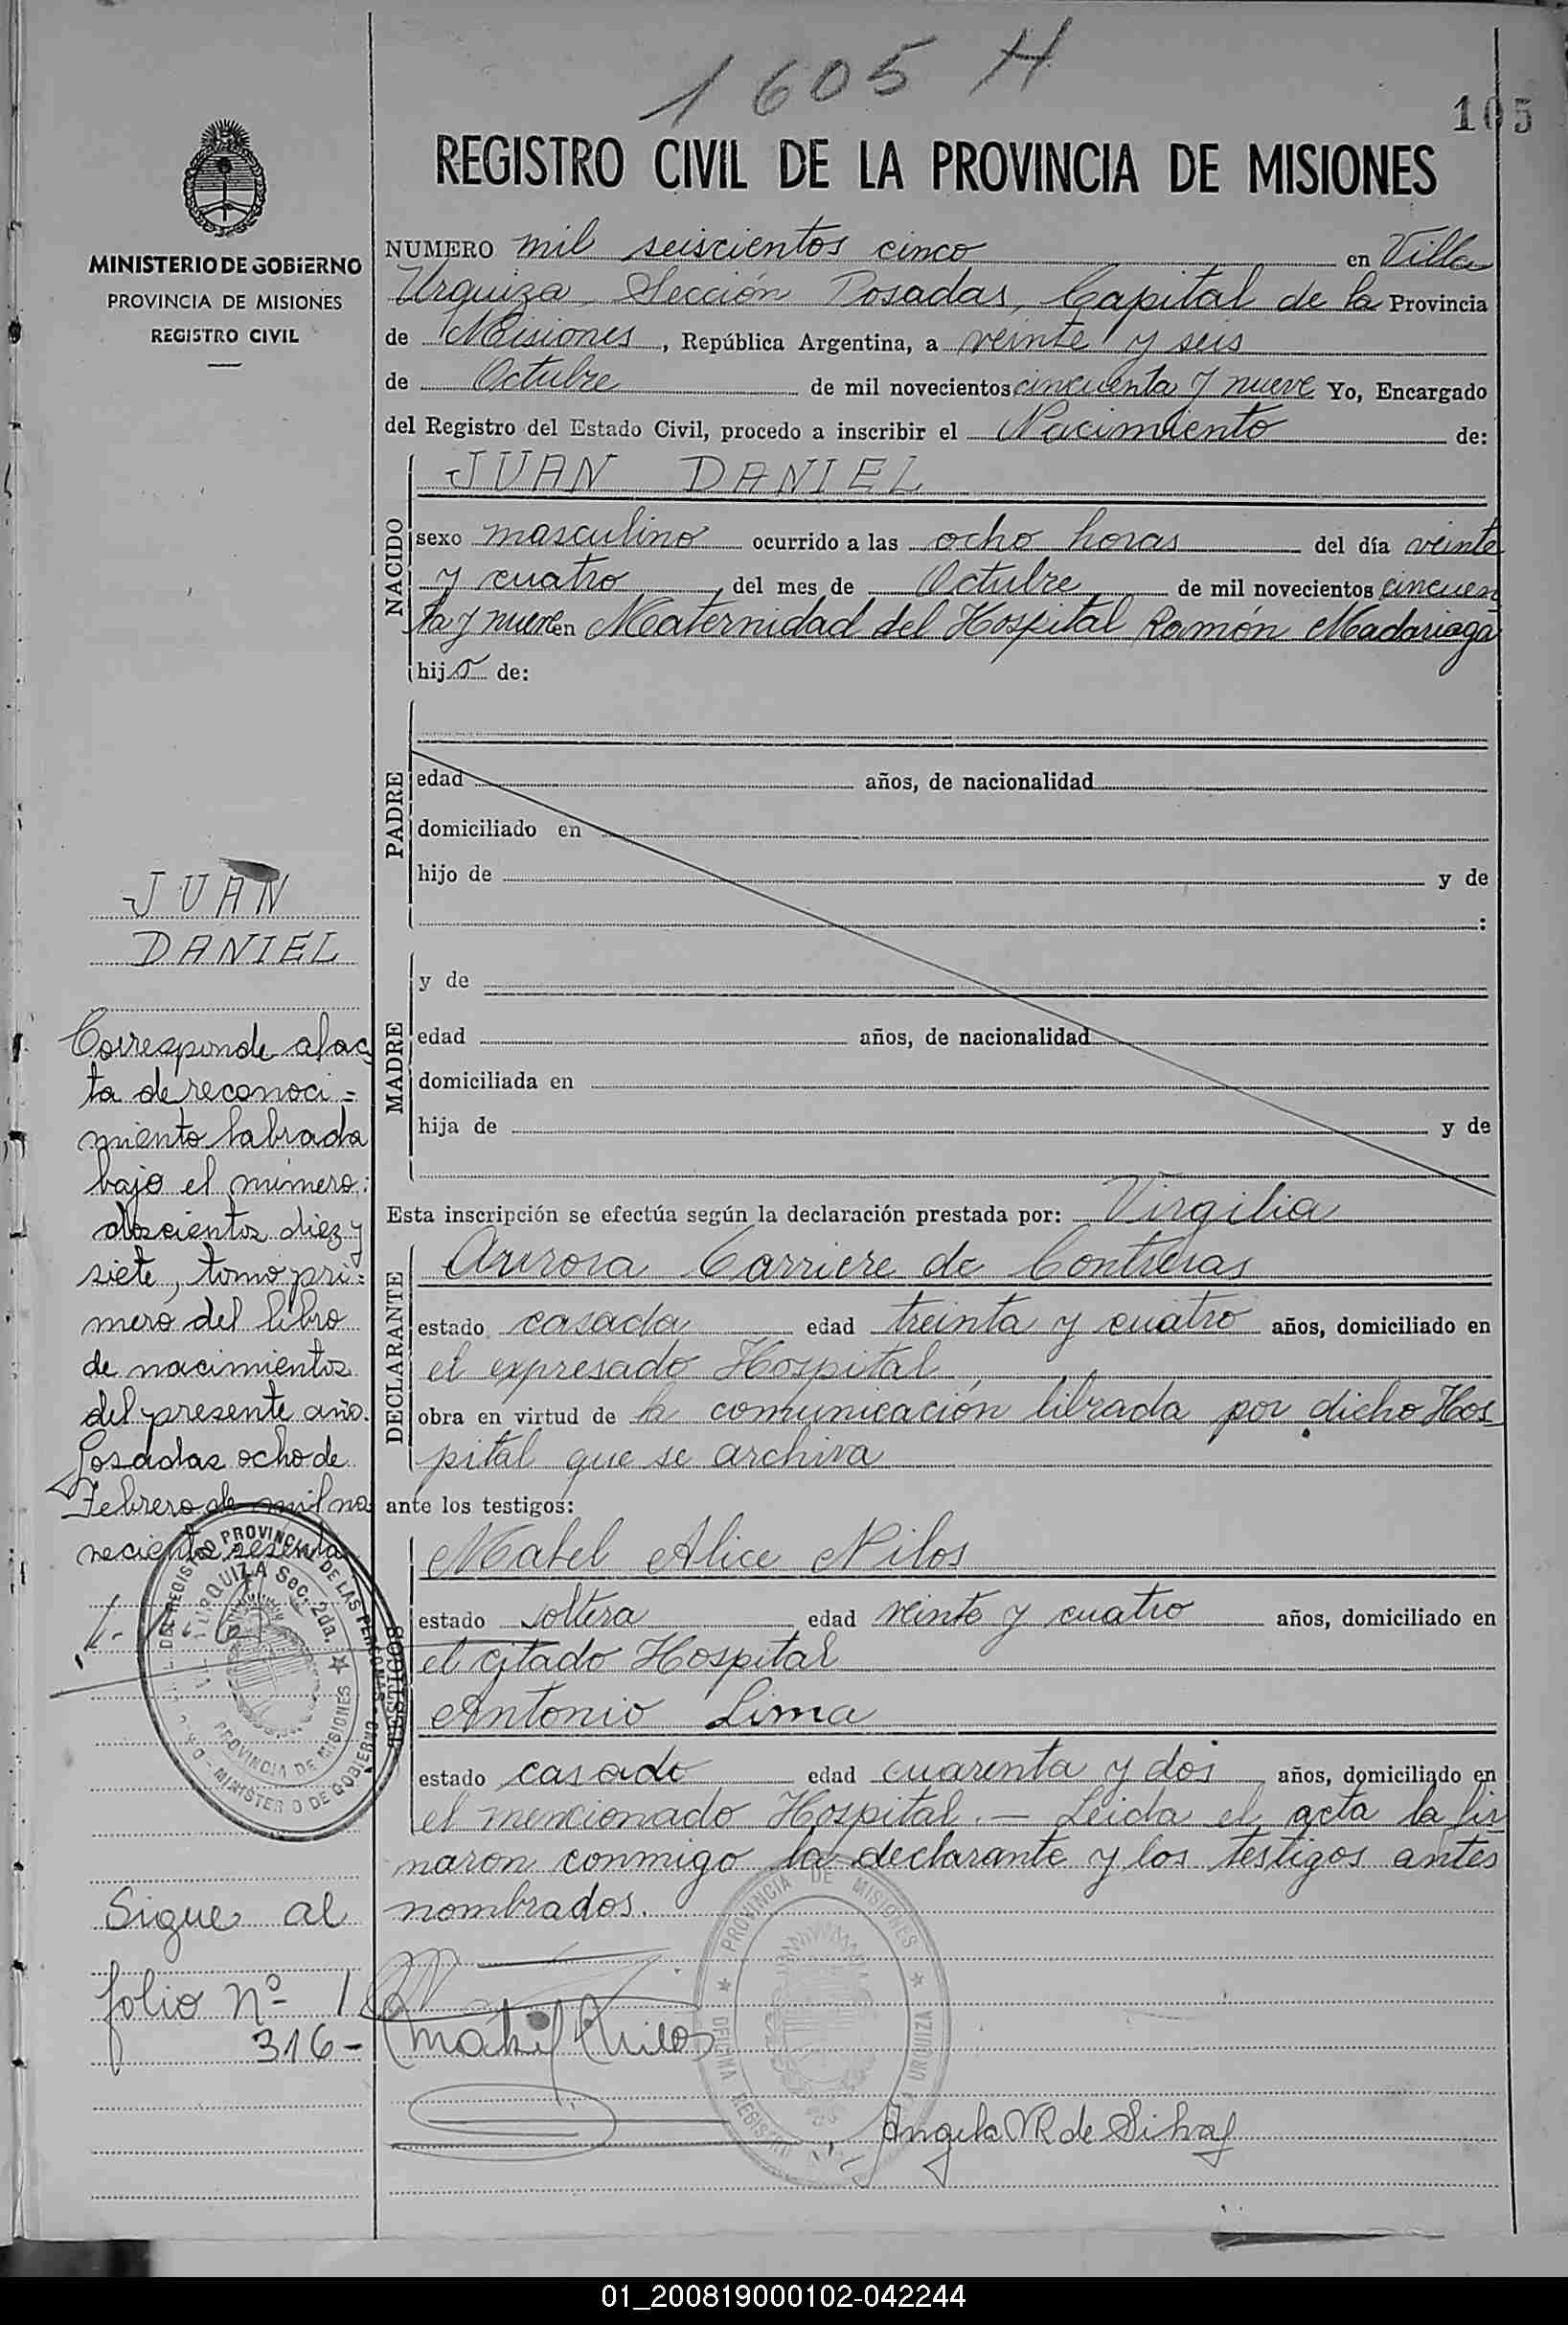 1605 H
105
REGISTRO CIVIL DE LA PROVINCIA DE MISIONES
MINISTERIO DE GOBIERNO
PROVINCIA DE MISIONES
REGISTRO CIVIL
NUMERO mil seiscientos cinco en Villa
Urquiza, Sección Posadas, Capital de la Provincia
de Misiones, República Argentina, a veinte y seis
de Octubre de mil novecientos cincuenta y nueve Yo, Encargado
del Registro del Estado Civil, procedo a inscribir el Nacimiento de:
NACIDO
JUAN DANIEL
sexo masculino ocurrido a las ocho horas del día veinte
y cuatro del mes de Octubre de mil novecientos cincuen
ta y nueve en Maternidad del Hospital Ramón Madariaga
hijo de:
PADRE
edad años, de nacionalidad
domiciliado en
hijo de y de
:
MADRE
y de
edad años, de nacionalidad
domiciliada en
hija de y de
Esta inscripción se efectúa según la declaración prestada por: Virgilia
DECLARANTE
Aurora Carriere de Contreras
estado casada edad treinta y cuatro años, domiciliado en
el expresado Hospital,
obra en virtud de la comunicación librada por dicho Hos-
pital que se archiva
ante los testigos:
TESTIGOS
Mabel Alice Nilos
estado soltera edad veinte y cuatro años, domiciliado en
el citado Hospital
Antonio Lima
estado casado edad cuarenta y dos años, domiciliado en
el mencionado Hospital. — Leida el acta la fir
maron conmigo la declarante y los testigos antes
nombrados.
Mabel Nilos
Angela VR de Silva
PROVINCIA DE MISIONES
OFICINA REGISTRO URQUIZA
JUAN
DANIEL
Corresponde al ac
ta de reconoci=
miento labrada
bajo el número:
doscientos diez y
siete, tomo pri=
mero del libro
de nacimientos
del presente año.
Posadas ocho de
Febrero de mil no
vecientos sesenta
REGISTRO PROVINCIAL DE LAS PERSONAS
URQUIZA Sec. 2da.
PROVINCIA DE MISIONES
MINISTERIO DE GOBIERNO
Sigue al
folio Nº 1
316-
01_200819000102-042244